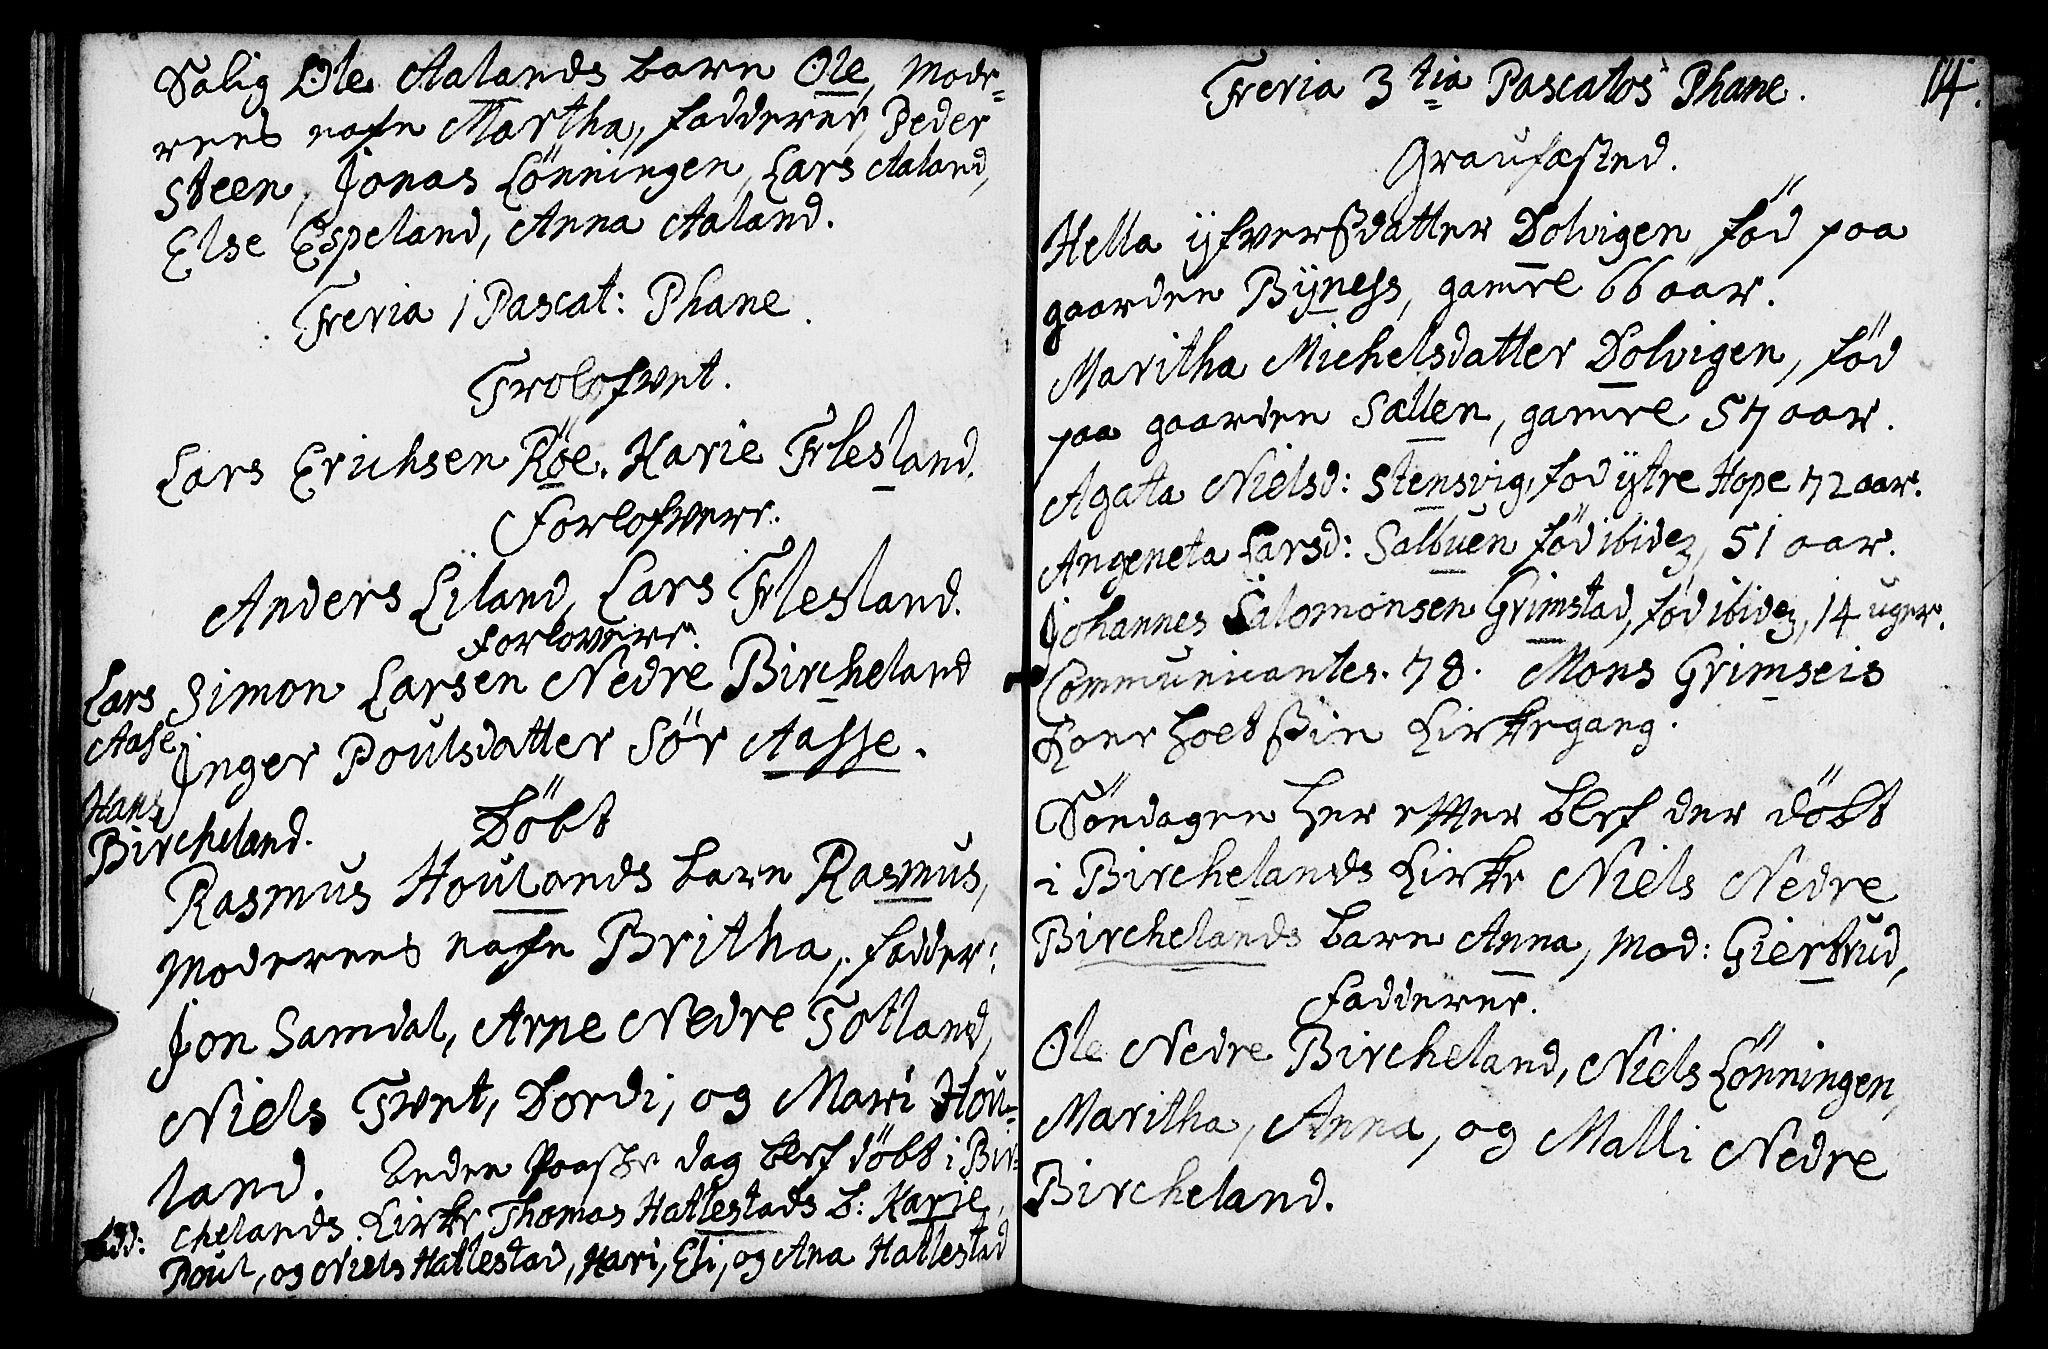 Salig Ole Aalands barn Ole, Mode-
rens nafn Martha, fadderne, Peder
Steen, Jonas Lönningen, Lars Aaland,
Else Espeland, Anna Aaland.
Feria 1 Pascat: Phane.
Trolofvet.
Lars Erichsen Röe. Karie Flesland.
Forlofvere.
Anders Liland, Lars Flesland.
Forlovere.
Lars Simon Larsen Nedre Bircheland
Aase Inger Poulsdatter Sör Aasse.
Hans
Bircheland.
Döbt
Rasmus Houlands barn Rasmus,
Moderens nafn Britha, fadder:
Jon Samdal, Arne Nedre Totland,
Niels Tvet, Dordi, og Mari Hou-
land. Anden Paaske dag blef döbt i Bir-
chelands Kirke Thomas Hatlestads b: Karie,
fadd: Poul, og Niels Hatlestad, Kari, Eli, og Ana Hatlestad
Feria 3tia Pascatos Phane.
14.
Graufæsted.
Hella ÿfversdatter Dolvigen, föd paa
gaarden Bÿness, gamle 66 aar.
Maritha Michelsdatter Dolvigen, föd
paa gaarden Sællen, gamle 57 aar.
Agata Nielsd: Stensvig, fod ÿtre Hope 72 aar.
Angeneta Larsd: Salbuen föd ibidem, 51 aar.
Johannes Salomonsen Grimstad, föd ibidem, 14 uger.
Communicantes. 78. Mons Grimseis
Kone holdt sin Kirkegang.
Söndagen her efter blef der döbt
i Birchelands Kirke Niels Nedre
Birchelands barn Anna, Mod: Giertrud,
Fadderne.
Ole Nedre Bircheland, Niels Lönningen,
Maritha, Anna, og Malli Nedre
Bircheland.